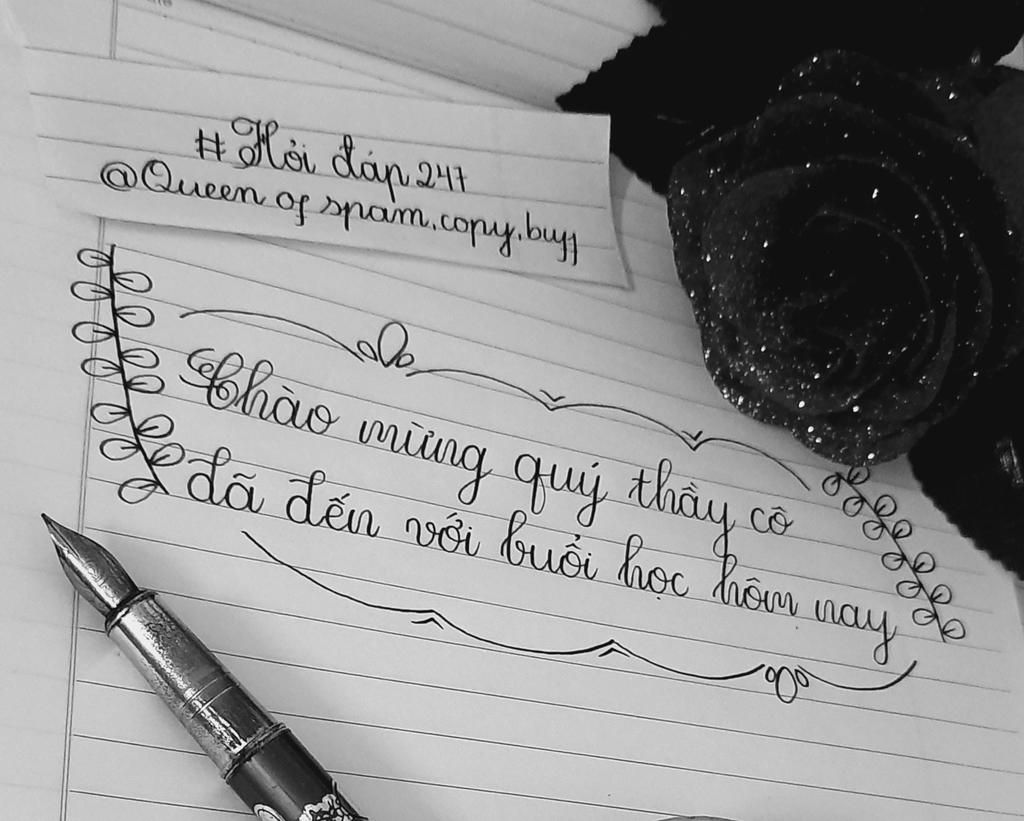 #Hỏi đáp 247
@Queen of spam.copy.buff
Chào mừng quý thầy cô
đã đến với buổi học hôm nay